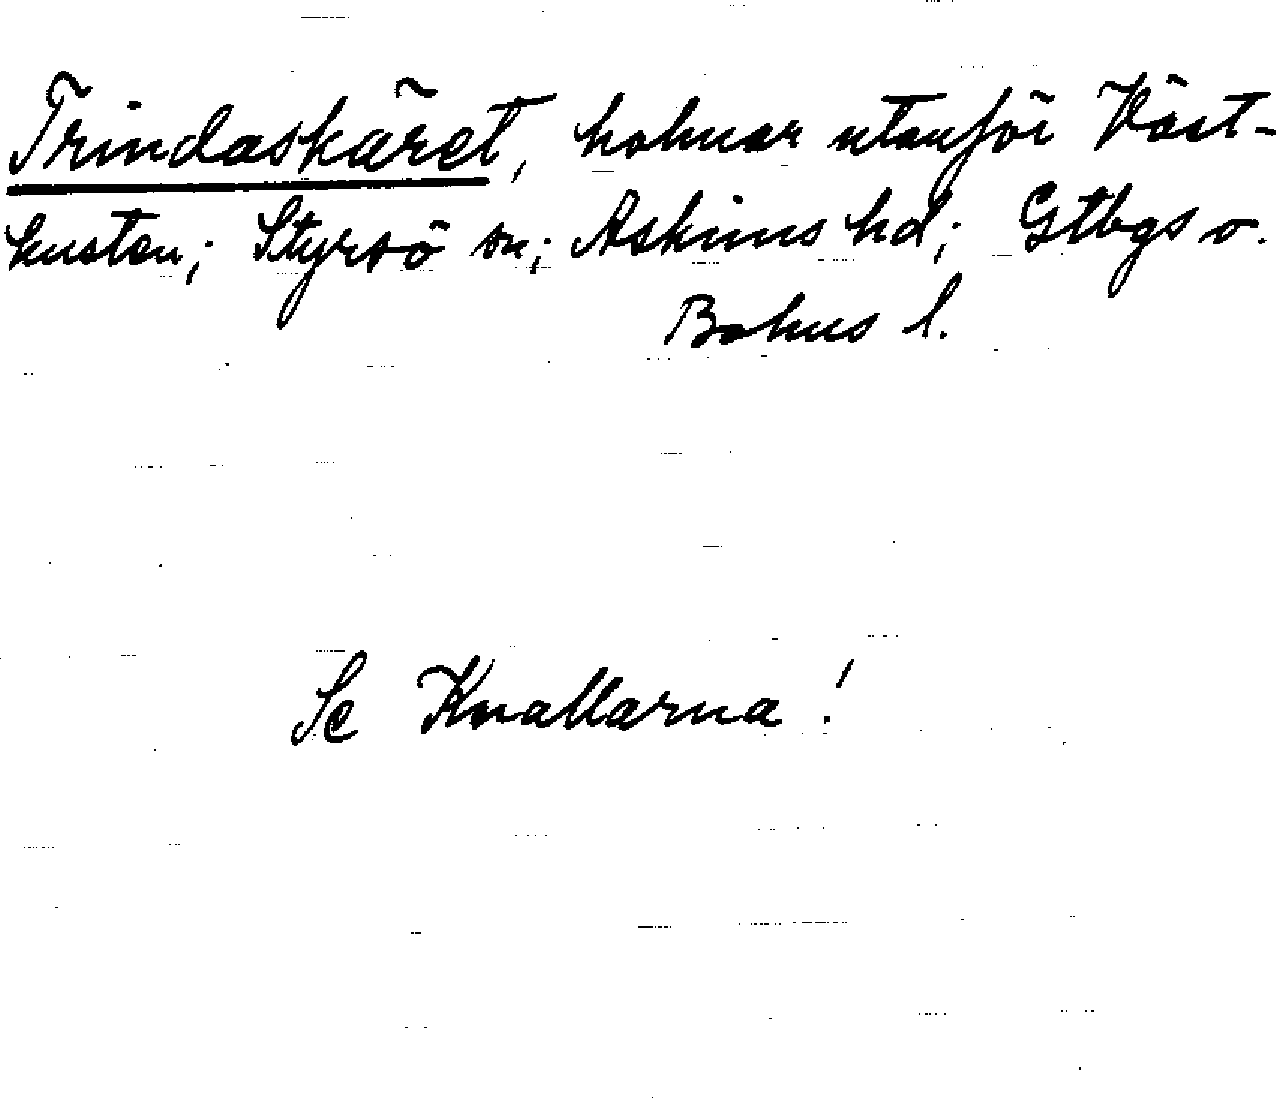 Trindaskäret, holmar utanför Väst-
kusten; Styrsö sn; Askims hd; Gtbgs o.
Bohus l.
Se Knallarna!